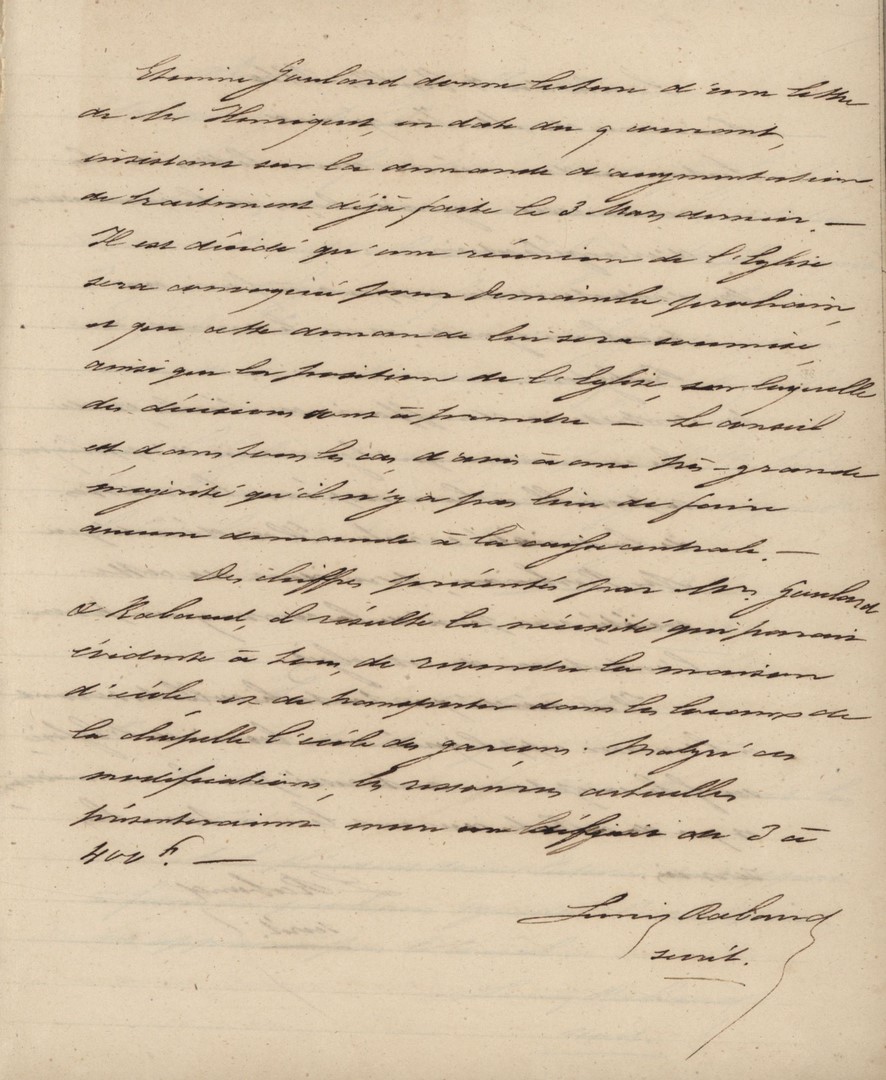 Etienne Goulard donne lecture d'une lettre
de Mr Henriquet, en date du 9 courant,
insistant sur la demande d'augmentation
de traitement déjà faite le 3 Mars dernier. —
Il est décidé qu'une réunion de l'Eglise
sera convoquée pour Dimanche prochain,
et que cette demande lui sera soumise,
ainsi que la position de l'Eglise, sur laquelle
des décisions sont à prendre — Le conseil
est dans tous les cas, d'avis à une très-grande
majorité qu'il n'y a pas lieu de faire
aucune demande à la caisse centrale. —
Des chiffres présentés par Mrs Goulard
& Rabaud, il résulte la nécessité qui parait
évidente à tous, de revendre la maison
d'école, et de transporter dans les locaux de
la chapelle l'école des garçons. Malgré ces
modifications, les ressources actuelles
présenteraient encore un déficit de 3 à
400 f. —
Rabaud
secrét.